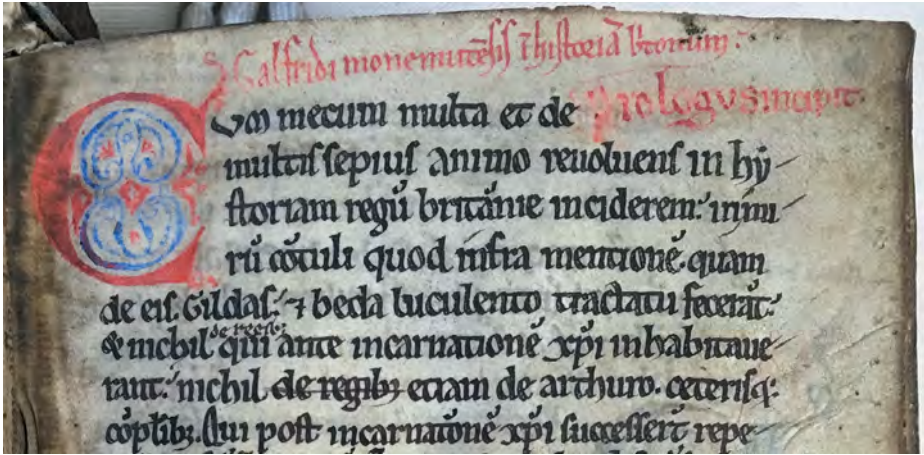 Galfridi monemutēsis ī historiā britonum.
Prologus incipit.
Cum mecum multa et de
multis sepius animo reuoluens in hy-
storiam regū britānie inciderem: in mi-
rū cōtuli quod infra mentionē quam
de eis Gildas: ⁊ beda luculento tractatu fecerāt:
de regib;
& nichil qui ante incarnationē xp̄i inhabitaue-
rant: nichil de regib; etiam de arthuro. ceterisq:
cōplib;. Qui post incarnationē xp̄i successerūt repe-